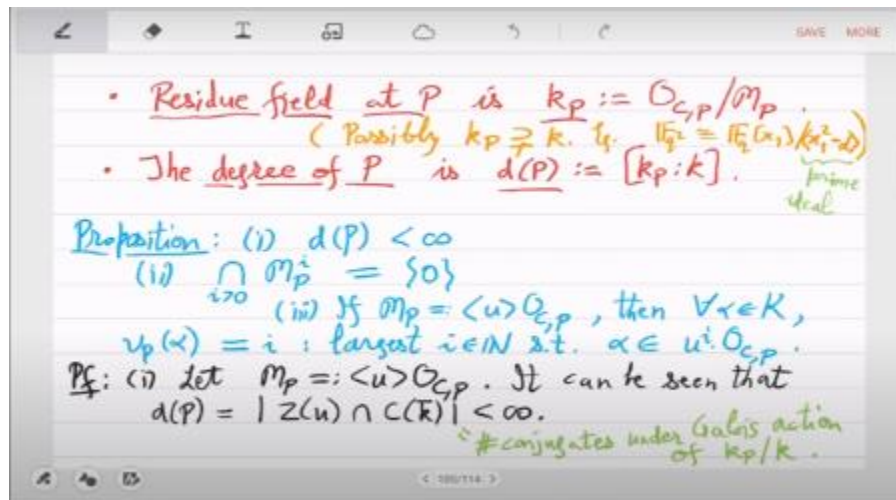 SAVE MORE
• Residue field at P is k_P := O_{C,P}/m_P .
( Possibly k_P ⊋ k. Eg. F_{q²} ≅ F_q[x₁]/⟨x₁²-α⟩)
• The degree of P is d(P) := [k_P : k] .
prime
ideal
Proposition : (i) d(P) < ∞
(ii) ⋂_{i>0} m_P^i = {0}
(iii) If m_P =: <u>O_{C,P} , then ∀α∈K,
v_P(α) = i : largest i∈ℕ s.t. α ∈ u^i.O_{C,P} .
Pf: (i) Let m_P =: <u>O_{C,P} . It can be seen that
d(P) = | Z(u) ∩ C(k̄) | < ∞.
#conjugates under Galois action
of k_P/k .